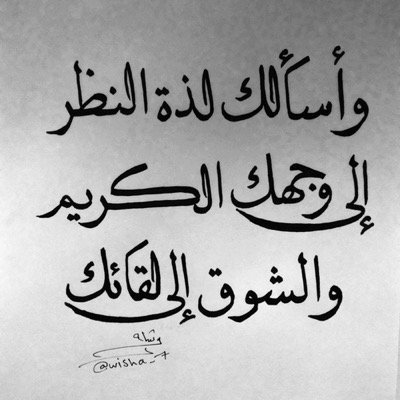 وأسألك لذة النظر
إلى وجهك الكريم
والشوق إلى لقائك
وشاح
@wisha_